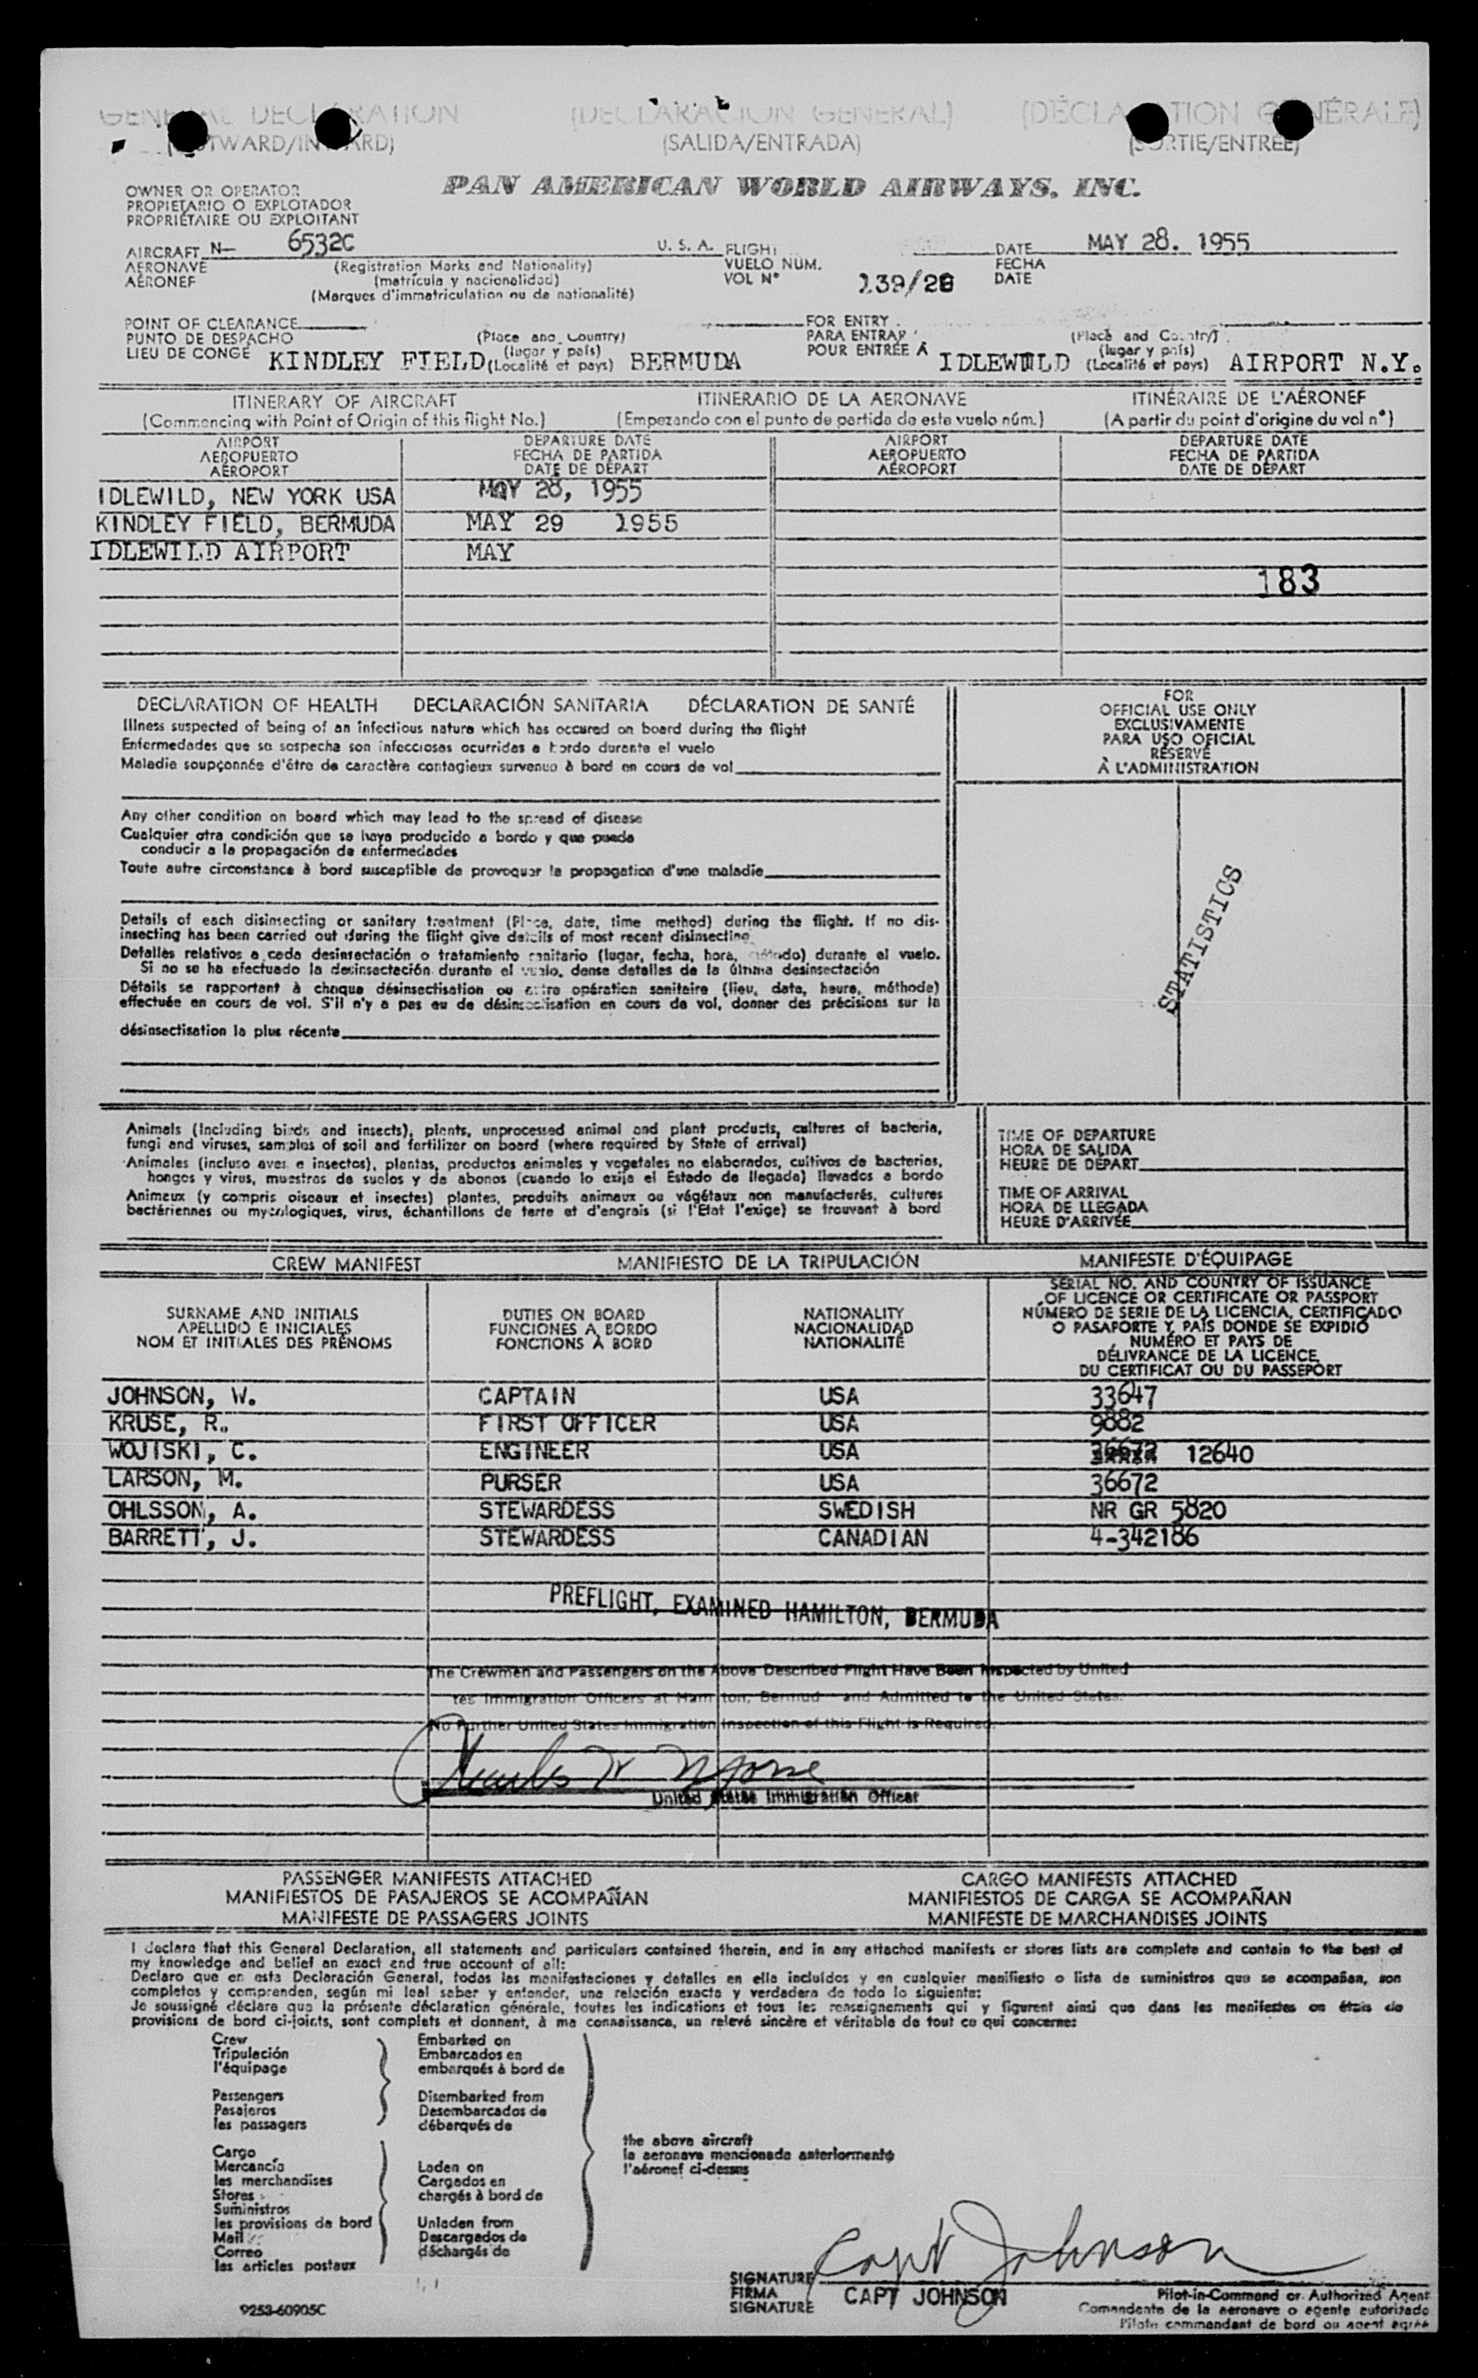 GENERAL DECLARATION (DECLARACION GENERAL) (DÉCLARATION GÉNÉRALE)
(OUTWARD/INWARD) (SALIDA/ENTRADA) (SORTIE/ENTRÉE)
PAN AMERICAN WORLD AIRWAYS, INC.
OWNER OR OPERATOR
PROPIETARIO O EXPLOTADOR
PROPRIÉTAIRE OU EXPLOITANT
AIRCRAFT N- 6532C U. S. A. FLIGHT DATE MAY 28. 1955
AERONAVE (Registration Marks and Nationality) VUELO NUM. FECHA
AÉRONEF (matrícula y nacionalidad) VOL N° 139/28 DATE
(Marques d'immatriculation ou de nationalité)
POINT OF CLEARANCE FOR ENTRY
PUNTO DE DESPACHO (Place and Country) PARA ENTRAR (Place and Country)
LIEU DE CONGÉ KINDLEY FIELD (lugar y país) (Localité et pays) BERMUDA POUR ENTRÉE À IDLEWILD (lugar y país) (Localité et pays) AIRPORT N.Y.
ITINERARY OF AIRCRAFT ITINERARIO DE LA AERONAVE ITINÉRAIRE DE L'AÉRONEF
(Commencing with Point of Origin of this flight No.) (Empezando con el punto de partida de este vuelo núm.) (A partir du point d'origine du vol n°)
AIRPORT DEPARTURE DATE AIRPORT DEPARTURE DATE
AEROPUERTO FECHA DE PARTIDA AEROPUERTO FECHA DE PARTIDA
AÉROPORT DATE DE DÉPART AÉROPORT DATE DE DÉPART
IDLEWILD, NEW YORK USA MAY 28, 1955
KINDLEY FIELD, BERMUDA MAY 29 1955
IDLEWILD AIRPORT MAY
183
DECLARATION OF HEALTH DECLARACIÓN SANITARIA DÉCLARATION DE SANTÉ
Illness suspected of being of an infectious nature which has occured on board during the flight
Enfermedades que se sospecha son infecciosas ocurridas a bordo durante el vuelo
Maladie soupçonnée d'être de caractère contagieux survenue à bord en cours de vol
FOR
OFFICIAL USE ONLY
EXCLUSIVAMENTE
PARA USO OFICIAL
RÉSERVÉ
À L'ADMINISTRATION
Any other condition on board which may lead to the spread of disease
Cualquier otra condición que se haya producido a bordo y que pueda
conducir a la propagación de enfermedades
Toute autre circonstance à bord susceptible de provoquer la propagation d'une maladie
STATISTICS
Details of each disinsecting or sanitary treatment (Place, date, time method) during the flight. If no dis-
insecting has been carried out during the flight give details of most recent disinsecting
Detalles relativos a cada desinsectación o tratamiento sanitario (lugar, fecha, hora, método) durante el vuelo.
Si no se ha efectuado la desinsectación durante el vuelo, dense detalles de la última desinsectación
Détails se rapportant à chaque désinsectisation ou autre opération sanitaire (lieu, date, heure, méthode)
effectuée en cours de vol. S'il n'y a pas eu de désinsectisation en cours de vol, donner des précisions sur la
désinsectisation la plus récente
Animals (Including birds and insects), plants, unprocessed animal and plant products, cultures of bacteria,
fungi and viruses, samples of soil and fertilizer on board (where required by State of arrival)
Animales (incluso aves e insectos), plantas, productos animales y vegetales no elaborados, cultivos de bacterias,
hongos y virus, muestras de suelos y de abonos (cuando lo exija el Estado de llegada) llevados a bordo
Animaux (y compris oiseaux et insectes) plantes, produits animaux ou végétaux non manufacturés, cultures
bactériennes ou mycologiques, virus, échantillons de terre et d'engrais (si l'Etat l'exige) se trouvant à bord
TIME OF DEPARTURE
HORA DE SALIDA
HEURE DE DÉPART
TIME OF ARRIVAL
HORA DE LLEGADA
HEURE D'ARRIVÉE
CREW MANIFEST MANIFIESTO DE LA TRIPULACIÓN MANIFESTE D'ÉQUIPAGE
SURNAME AND INITIALS
APELLIDO E INICIALES
NOM ET INITIALES DES PRÉNOMS
DUTIES ON BOARD
FUNCIONES A BORDO
FONCTIONS À BORD
NATIONALITY
NACIONALIDAD
NATIONALITÉ
SERIAL NO. AND COUNTRY OF ISSUANCE
OF LICENCE OR CERTIFICATE OR PASSPORT
NÚMERO DE SERIE DE LA LICENCIA, CERTIFICADO
O PASAPORTE Y PAÍS DONDE SE EXPIDIÓ
NUMÉRO ET PAYS DE
DÉLIVRANCE DE LA LICENCE
DU CERTIFICAT OU DU PASSEPORT
JOHNSON, W. CAPTAIN USA 33647
KRUSE, R. FIRST OFFICER USA 9882
WOJTSKI, C. ENGINEER USA 36672 12640
LARSON, M. PURSER USA 36672
OHLSSON, A. STEWARDESS SWEDISH NR GR 5820
BARRETT, J. STEWARDESS CANADIAN 4-342186
PREFLIGHT, EXAMINED HAMILTON, BERMUDA
The Crewmen and Passengers on the Above Described Flight Have Been Inspected by United
tes Immigration Officers at Hamilton, Bermuda and Admitted to the United States.
No Further United States Immigration Inspection of this Flight is Required.
United States Immigration Officer
PASSENGER MANIFESTS ATTACHED CARGO MANIFESTS ATTACHED
MANIFIESTOS DE PASAJEROS SE ACOMPAÑAN MANIFIESTOS DE CARGA SE ACOMPAÑAN
MANIFESTE DE PASSAGERS JOINTS MANIFESTE DE MARCHANDISES JOINTS
I declare that this General Declaration, all statements and particulars contained therein, and in any attached manifests or stores lists are complete and contain to the best of
my knowledge and belief an exact and true account of all:
Declaro que en esta Declaración General, todas las manifestaciones y detalles en ella incluídos y en cualquier manifiesto o lista de suministros que se acompañan, son
completos y comprenden, según mi leal saber y entender, una relación exacta y verdadera de todo lo siguiente:
Je soussigné déclare que la présente déclaration générale, toutes les indications et tous les renseignements qui y figurent ainsi que dans les manifestes ou états de
provisions de bord ci-joints, sont complets et donnent, à ma connaissance, un relevé sincère et véritable de tout ce qui concerne:
Crew Embarked on
Tripulación Embarcados en
l'équipage embarqués à bord de
Passengers Disembarked from
Pasajeros Desembarcados de
les passagers débarqués de
the above aircraft
la aeronave mencionada anteriormente
l'aéronef ci-dessus
Cargo
Mercancía Laden on
les merchandises Cargados en
Stores chargés à bord de
Suministros
les provisions de bord Unladen from
Mail Descargados de
Correo déchargés de
les articles postaux
Capt Johnson
SIGNATURE
FIRMA CAPT JOHNSON
SIGNATURE
Pilot-in-Command or Authorized Agent
Comandante de la aeronave o agente autorizado
Pilote commandant de bord ou agent agréé
9253-60905C